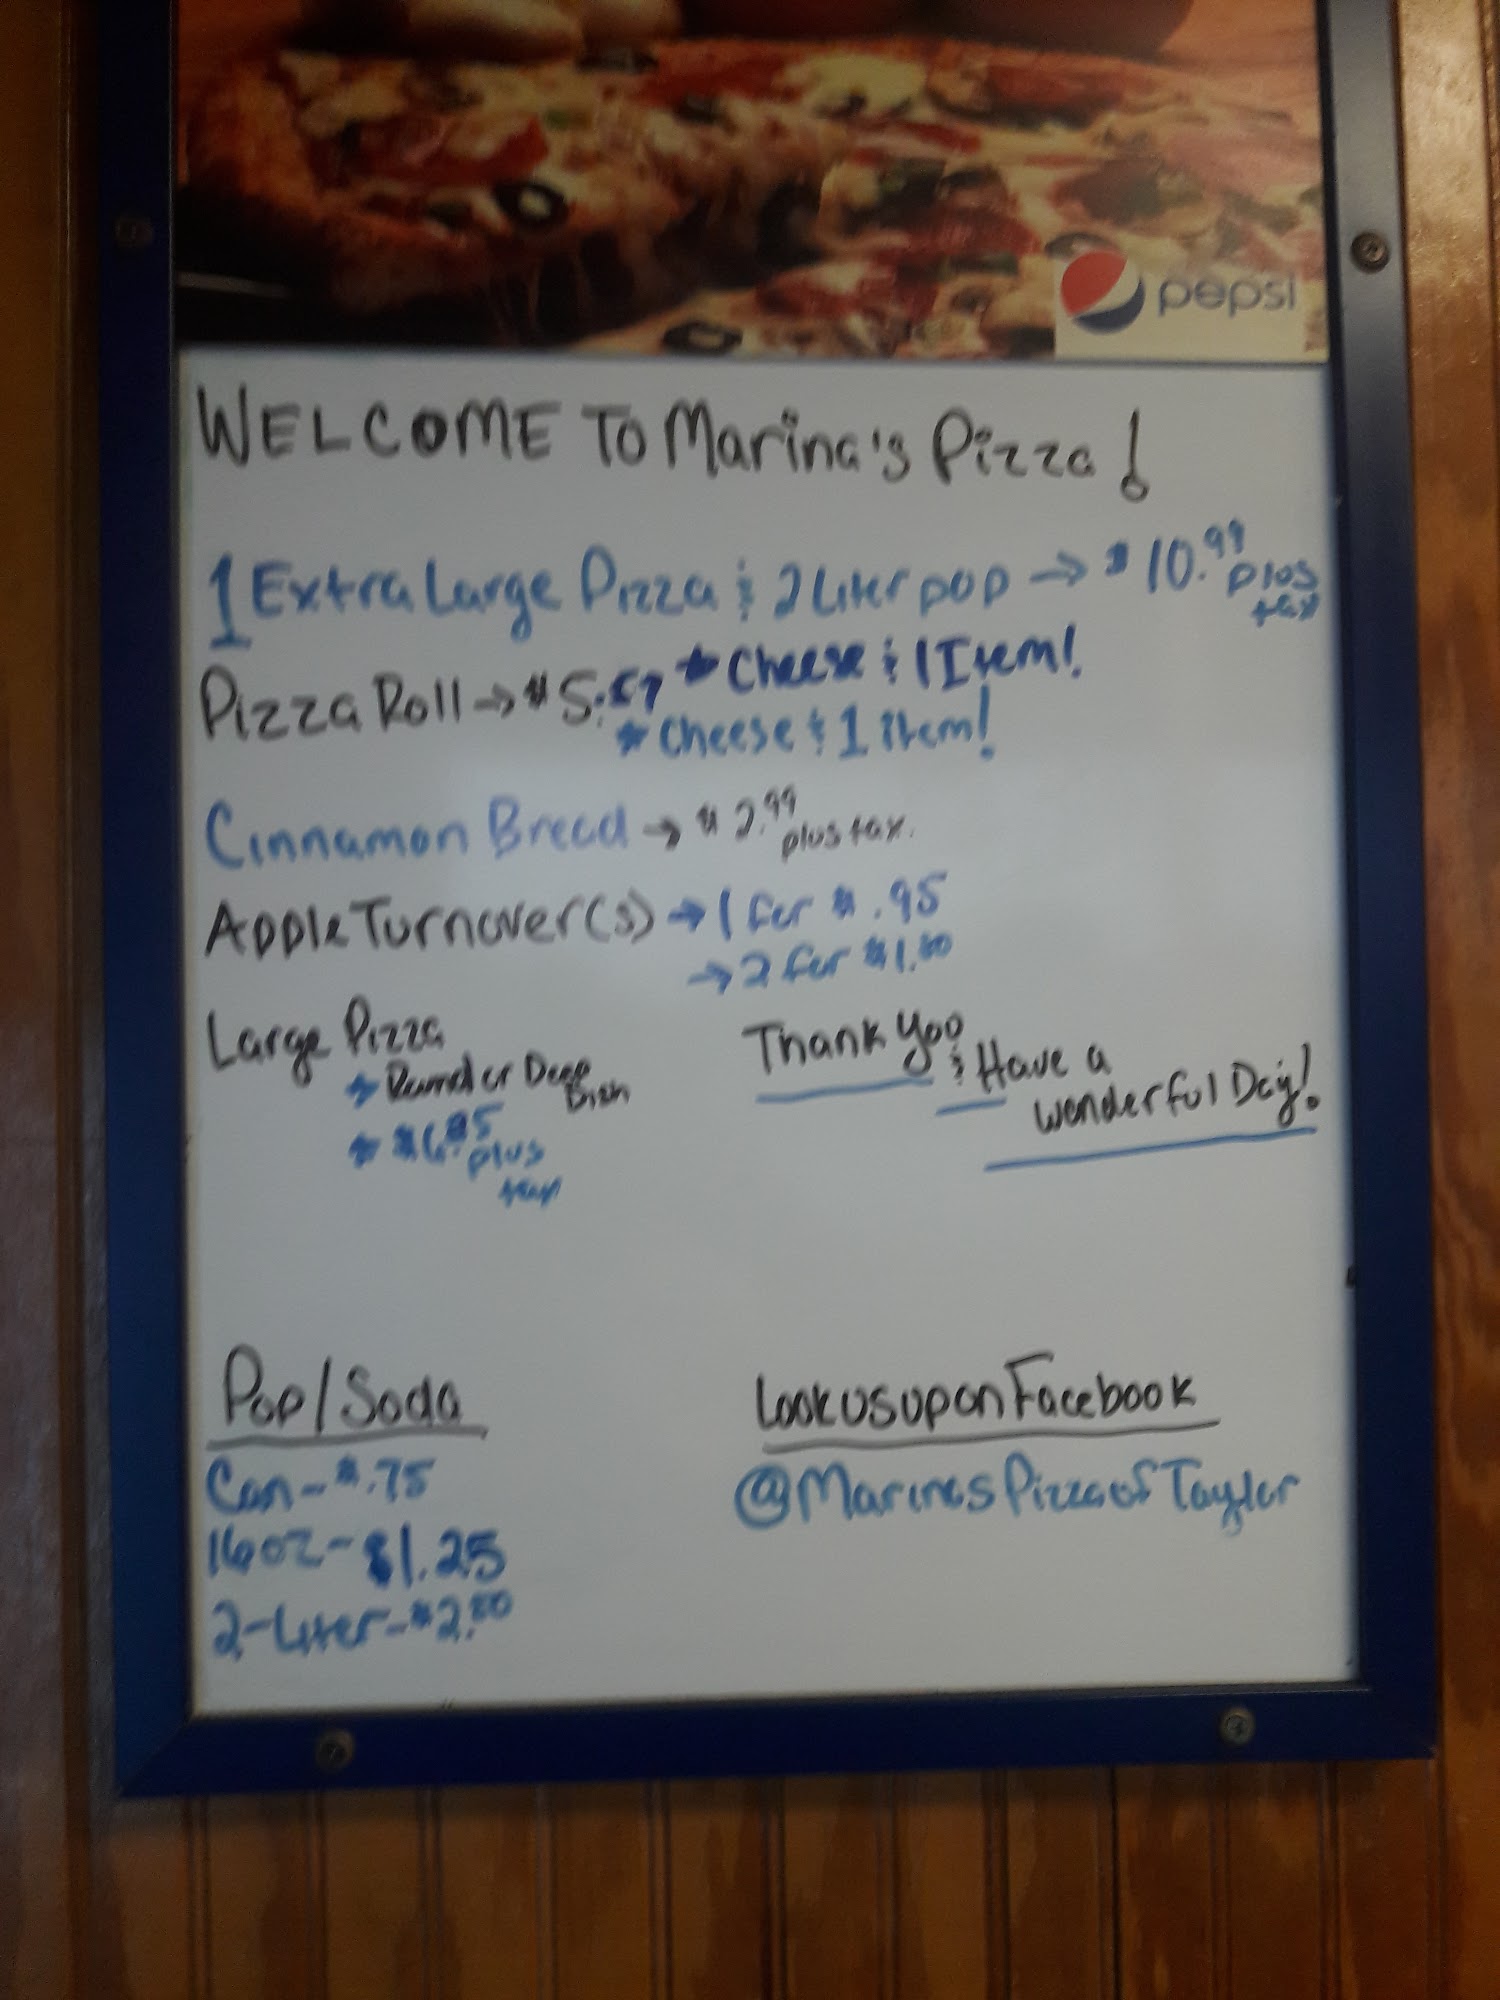 pepsi
WELCOME TO Marina's Pizza!
1 Extra Large Pizza & 2 Liter pop → $10.99 plus tax
Pizza Roll → $5.57 * Cheese & 1 Item!
* Cheese & 1 item!
Cinnamon Bread → $2.99 plus tax.
Apple Turnover(s) → 1 for $.95
→ 2 for $1.80
Large Pizza
* Round or Deep Dish
* plus tax
Thank you
& Have a
wonderful Day!
Pop/Soda
Can - $.75
16oz - $1.25
2-Liter - $2.80
Look us up on Facebook
@MarinasPizzaofTaylor